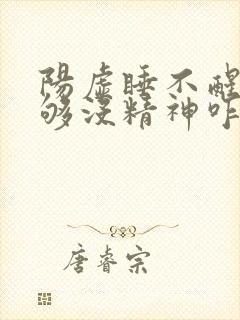 陽虛睡不醒
够没精神咋
唐睿宗